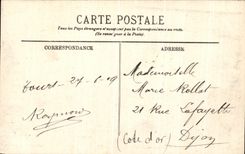 CARTE POSTALE
Tous les Pays étrangers n'acceptent pas la Correspondance au recto.
(Se renseigner à la Poste)
CORRESPONDANCE
ADRESSE
Tours - 27-6-09
Raymond
Mademoiselle
Marie Rollot
21 Rue Lafayette
(Cote d'or) Dijon